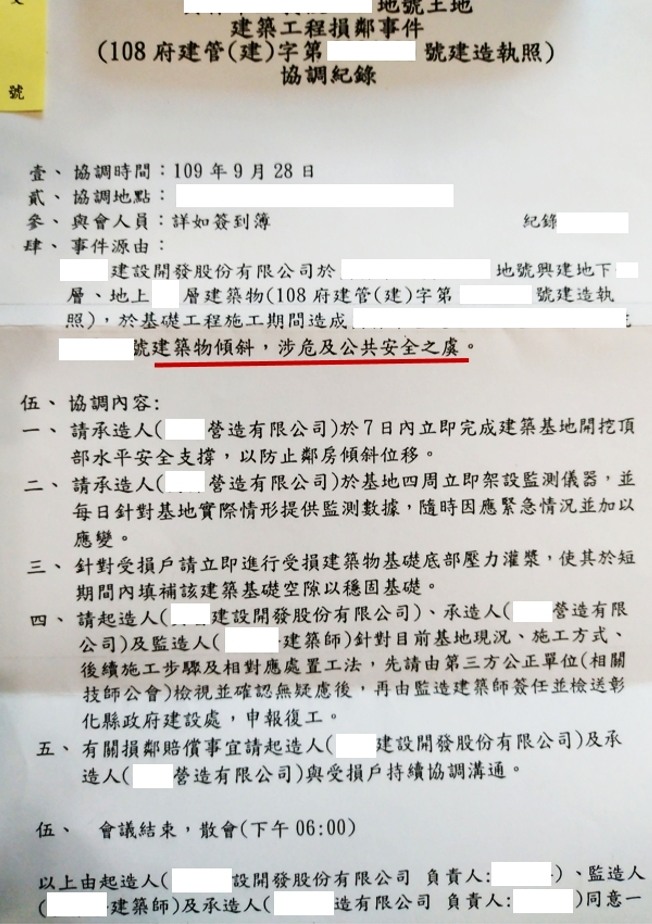 號
地號土地
建築工程損鄰事件
(108 府建管(建)字第 號建造執照)
協調紀錄
壹、協調時間：109 年 9 月 28 日
貳、協調地點：
參、與會人員：詳如簽到簿 紀錄
肆、事件源由：
建設開發股份有限公司於 地號興建地下
層、地上 層建築物(108 府建管(建)字第 號建造執
照)，於基礎工程施工期間造成
號建築物傾斜，涉危及公共安全之虞。
伍、協調內容:
一、請承造人( 營造有限公司)於 7 日內立即完成建築基地開挖頂
部水平安全支撐，以防止鄰房傾斜位移。
二、請承造人( 營造有限公司)於基地四周立即架設監測儀器，並
每日針對基地實際情形提供監測數據，隨時因應緊急情況並加以
應變。
三、針對受損戶請立即進行受損建築物基礎底部壓力灌漿，使其於短
期間內填補該建築基礎空隙以穩固基礎。
四、請起造人( 建設開發股份有限公司)、承造人( 營造有限
公司)及監造人( 建築師)針對目前基地現況、施工方式、
後續施工步驟及相對應處置工法，先請由第三方公正單位(相關
技師公會)檢視並確認無疑慮後，再由監造建築師簽任並檢送彰
化縣政府建設處，申報復工。
五、有關損鄰賠償事宜請起造人( 建設開發股份有限公司)及承
造人( 營造有限公司)與受損戶持續協調溝通。
伍、 會議結束，散會(下午 06:00)
以上由起造人( 設開發股份有限公司 負責人: )、監造人
( 建築師)及承造人( 造有限公司 負責人: )同意一